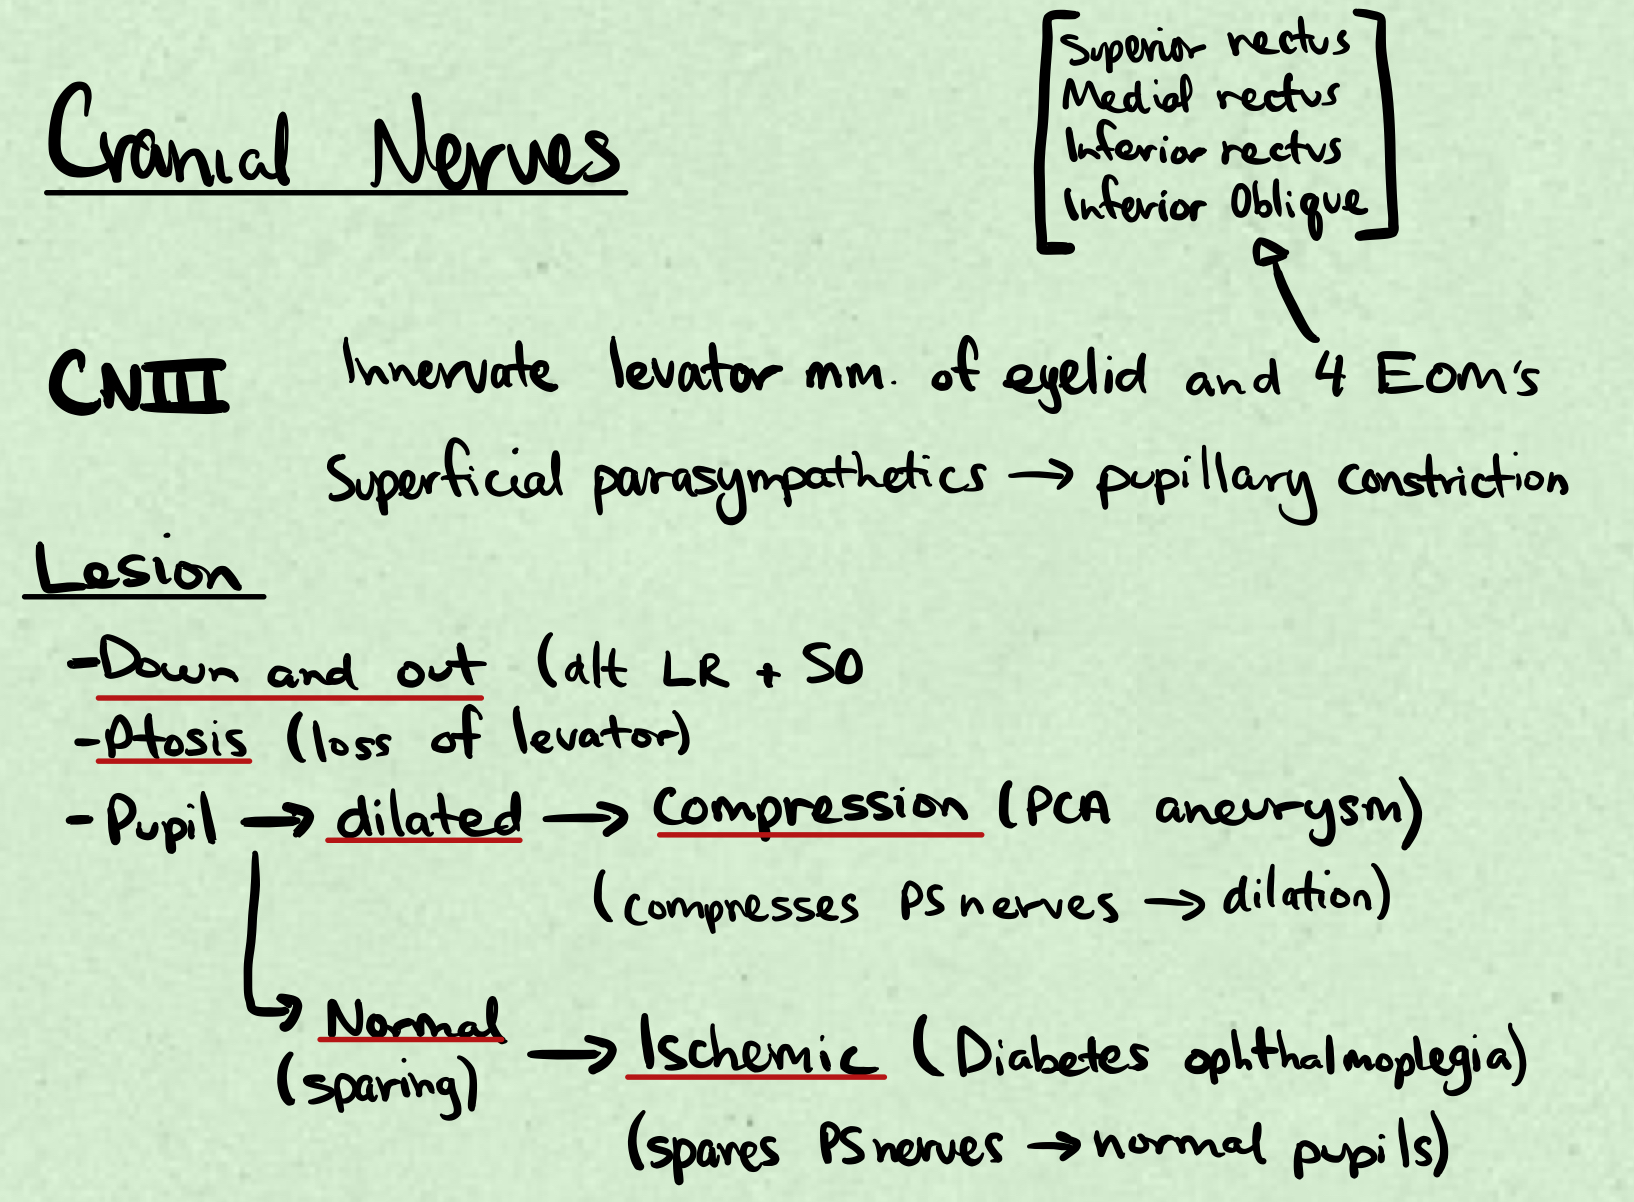 Superior rectus
Medial rectus
Inferior rectus
Inferior Oblique
Cranial Nerves
CNIII Innervate levator mm. of eyelid and 4 EOM's
Superficial parasympathetics → pupillary constriction
Lesion
-Down and out (alt LR + SO
-Ptosis (loss of levator)
-Pupil → dilated → Compression (PCA aneurysm)
(compresses PS nerves → dilation)
Normal → Ischemic (Diabetes ophthalmoplegia)
(sparing)
(spares PS nerves → normal pupils)